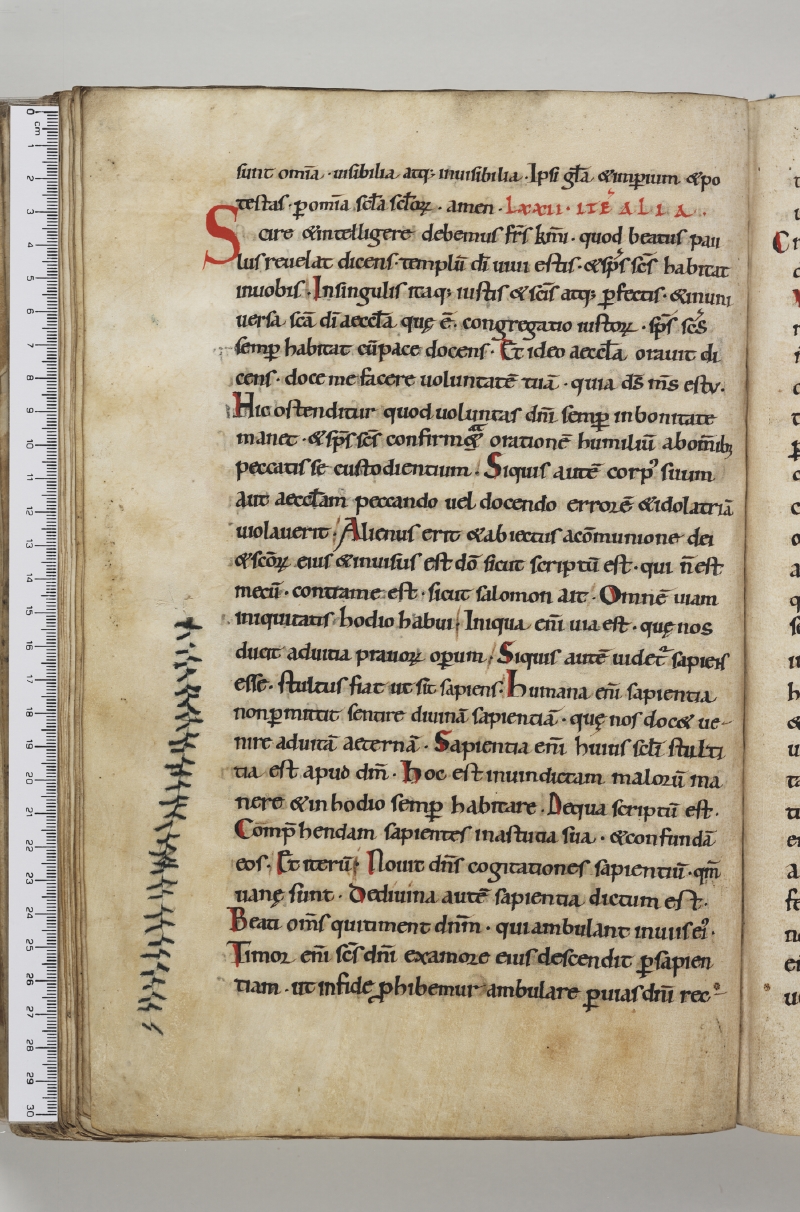 sunt om̄ia · uisibilia atq; inuisibilia · Ipsi gl̄a & imperium & po
testas · p om̄ia scl̄a scl̄oꝝ · amen · Lxxii · ITĒ ALIA ·
Scire & intelligere debemus fr̄s km̄i · quod beatus pau
lus reuelat dicens · templū dī uiui estis · & sp̄s sc̄s habitat
in uobis · In singulis itaq; iustis & sc̄is atq; ꝑfectis · & in uni
uersa sc̄a dī aeccl̄a quę ē · congregatio iustoꝝ · sp̄s sc̄s
semꝑ habitat cū pace docens · Et ideo aeccl̄a orauit di
cens · doce me facere uoluntatē tuā · quia ds̄ m̄s es tu ·
Hic ostenditur quod uoluntas dn̄i semꝑ in bonitate
manet · & sp̄s sc̄s confirmat orationē humiliū ab om̄ib;
peccatis se custodientium · Siquis autē corpꝰ suum
aut aeccl̄am peccando uel docendo errorē & idolatriā
uiolauerit · Alienus erit & abiectus a cōmunione dei
& sc̄oꝝ eius & inuisus est dō sicut scriptū est · qui n̄ est
mecū · contra me est · sicut salomon ait · Omnē uiam
iniquitatis hodio habui · Iniqua em̄ uia est · quę nos
ducit ad uitia prauoꝝ operum · Siquis autē uidet̉ sapiens
esse · stultus fiat ut sit sapiens · Humana em̄ sapientia
non ꝑmittit sentire diuinā sapientiā · quę nos doc& ue-
nire ad uitā aeternā · Sapientia em̄ huius scl̄i stulti
tia est apud dm̄ · hoc est in uindictam malorū ma
nere & in hodio semꝑ habitare · De qua scriptū est ·
Compr̄hendam sapientes in astutia sua · & confundā
eos · Et iterū · Nouit dn̄s cogitationes sapientiū · qm̄
uanę sunt · De diuina autē sapientia dictum est ·
Beati om̄s qui timent dnm̄ · qui ambulant in uiis eiꝰ ·
Timor em̄ sc̄s dn̄i ex amore eius descendit ꝑ sapien
tiam · ut in fide ꝓhibemur ambulare ꝑ uias dn̄i rec